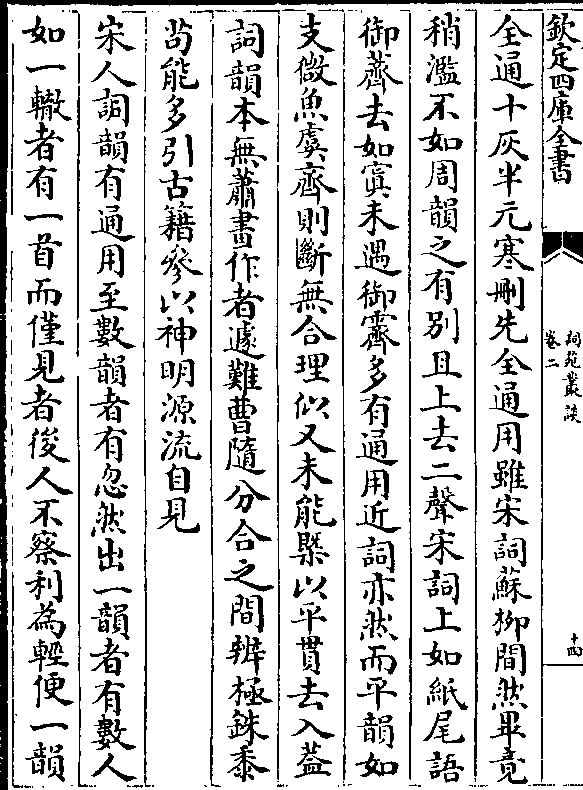 欽定四庫全書
詞苑叢談
卷二
十四
全通十灰半元寒刪先全通用雖宋詞蘇柳間然畢竟
稍濫不如周韻之有别且上去二聲宋詞上如紙尾語
御薺去如寘未遇御霽多有通用近詞亦然而平韻如
支微魚虞齊則斷無合理似又未能槩以平貫去入葢
詞韻本無蕭畫作者遽難曹隨分合之間辨極銖黍
茍能多引古籍參以神明源流自見
宋人詞韻有通用至數韻者有忽然出一韻者有數人
如一轍者有一首而僅見者後人不察利為輕便一韻